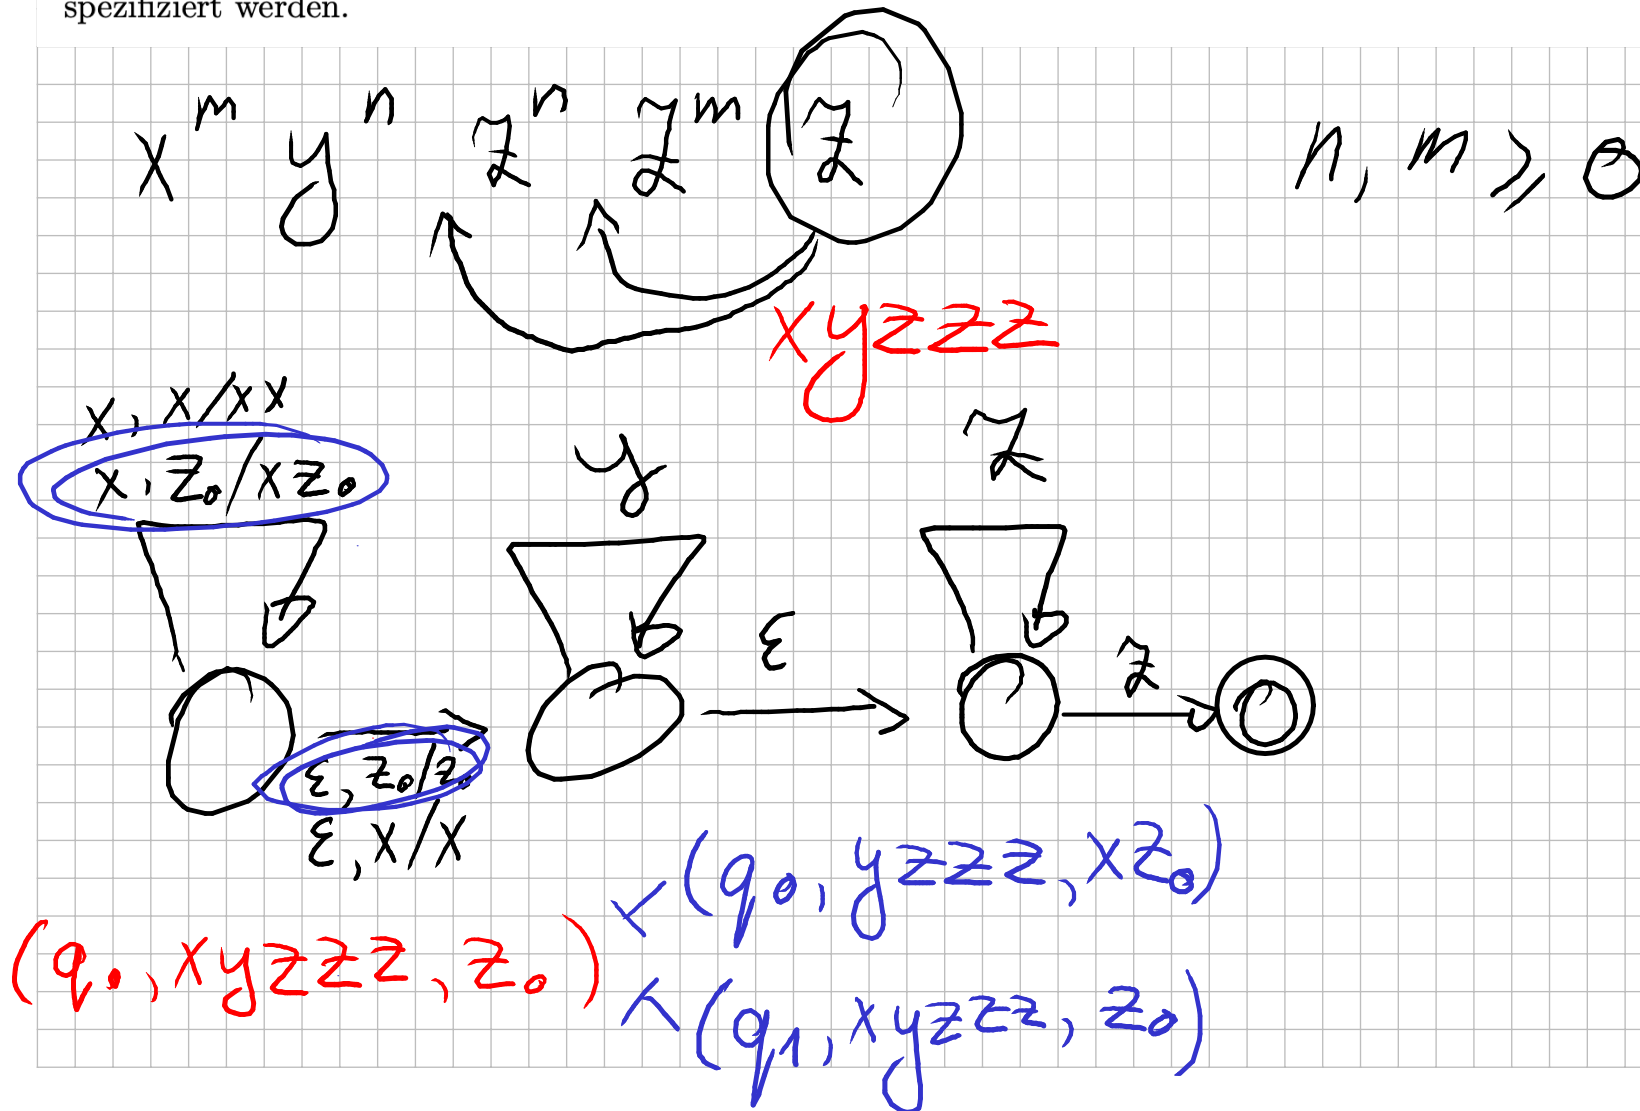 spezifiziert werden.
x^m y^n z^n z^m z n, m ⩾ 0
xyzzz
x, x/xx
x, z₀/xz₀
y
z
ε
z
ε, z₀/z₀
ε, x/x
⊢ (q₀, yzzz, xz₀)
(q₀, xyzzz, z₀)
⊢ (q₁, xyzzz, z₀)